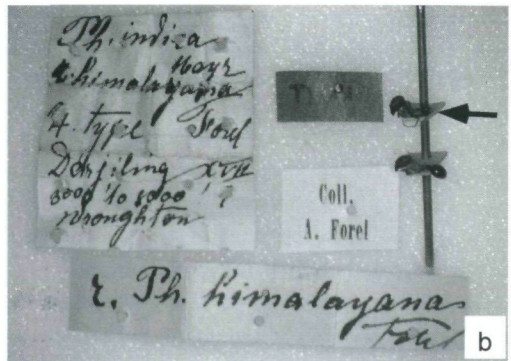 Ph. indica
Mayr
r. himalayana
Forel
♃. type
Darjiling XVII
3000' to 5000'
Wroughton
TYPE
Coll.
A. Forel
r. Ph. himalayana
Forel
b